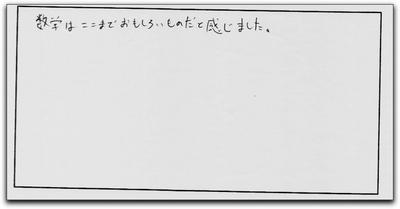 数学はここまでおもしろいものだと感じました。